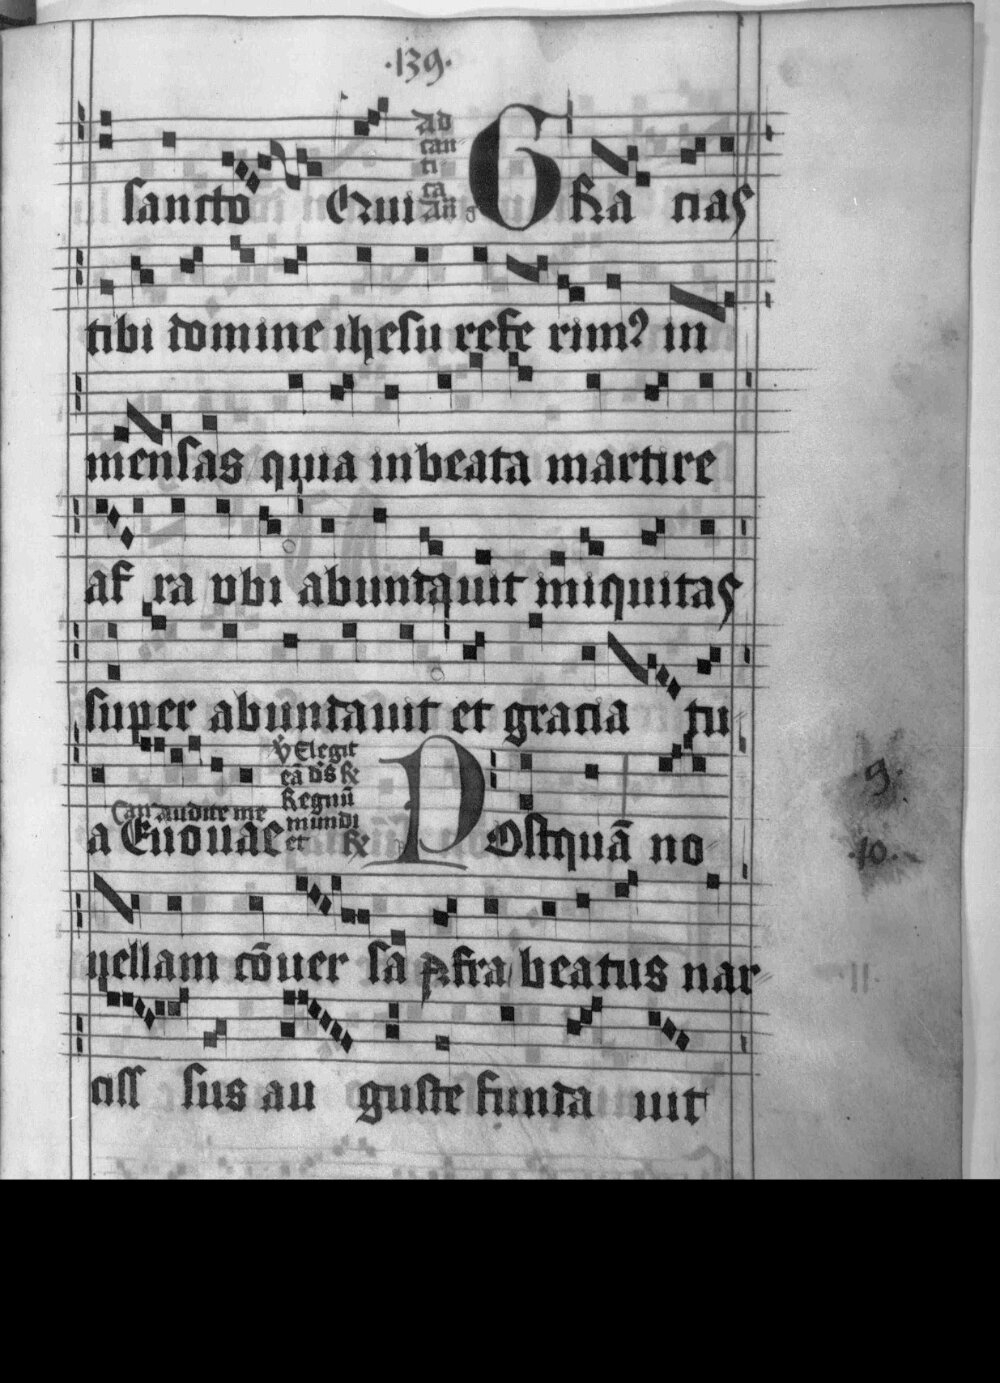 ·139·
sancto Qui Ad can ti ca Añ GRa cias
tibi domine ihesu refe rimꝰ in
mensas quia in beata martire
af ra vbi abundauit iniquitas
super abundauit et gracia tu
a Euouae Can Audite me ℣ Elegit eã dñs ℟ Regnũ mundi et ℟ POstquã no
uellam cõuer sa ꝑ fra beatus nar
ciss sus au guste funda uit
9·
·10·
·11·